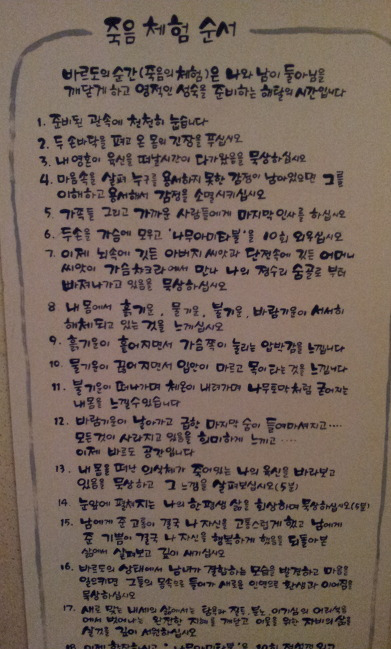 죽음 체험 순서
바르도의순간(죽음의체험)은 나와 남이 둘아님을
깨닫게 하고 영적인 성숙을 준비하는 해탈의 시간입니다
1. 준비된 관속에 천천히 눕습니다
2. 두 손바닥을 펴고 온 몸의 긴장을 푸십시오
3. 내 영혼이 육신을 떠날시간이 다가왔음을 묵상하십시오
4. 마음속을 살펴 누구를 용서하지 못한 감정이 남아있으면 그를
이해하고 용서해서 감정을 소멸시키십시오
5. 가족들 그리고 가까운 사람들에게 마지막 인사를 하십시오
6. 두손을 가슴에 모우고 '나무아미타불'을 10회 외우십시오
7. 이제 뇌속에 깃든 아버지 씨앗과 단전속에 깃든 어머니
씨앗이 가슴차크라에서 만나 나의 정수리 숨골로 부터
빠져나가고 있음을 묵상하십시오
8 내 몸에서 흙기운, 물기운, 불기운, 바람기운이 서서히
해체되고 있는 것을 느끼십시오
9. 흙기운이 흩어지면서 가슴쪽이 눌리는 압박감을 느낍니다
10. 물기운이 끊어지면서 입안이 마르고 목이타는 것을 느낍니다
11. 불기운이 떠나가며 체온이 내려가며 나무토막처럼 굳어지는
내몸을 느낄수있습니다
12. 바람기운이 날아가고 급한 마지막 숨이 들어마셔지고····
모든것이 사라지고 있음을 희미하게 느끼고····
이제 바르도 공간입니다
13. 내 몸을 떠난 의식체가 죽어있는 나의 육신을 바라보고
있음을 묵상하고 그 느낌을 살펴보십시오(5분)
14. 눈앞에 펼쳐지는 나의 한평생 삶을 회상하며 묵상하십시오(5분)
15. 남에게 준 고통이 결국 나 자신을 고통스럽게 했고 남에게
준 기쁨이 결국 나 자신을 행복하게 했음을 되돌아본
삶에서 살펴보고 깊이 새기십시오
16. 바르도의 상태에서 남녀가 결합하는 모습을 발견하고 마음을
일으키면 그들의 몸속으로 들어가 새로운 인연으로 환생과 이어짐을
묵상하십시오
17. 새로 맞는 내세의 삶에서는 탐욕과 질투, 분노, 이기심의 어리석음
에서 벗어나는 완전한 지혜를 깨닫고 이웃을 위한 자비의 삶을
살기를 깊이 서원하십시오
18. 이제 합장하시고 '나무아미타불'을 10회